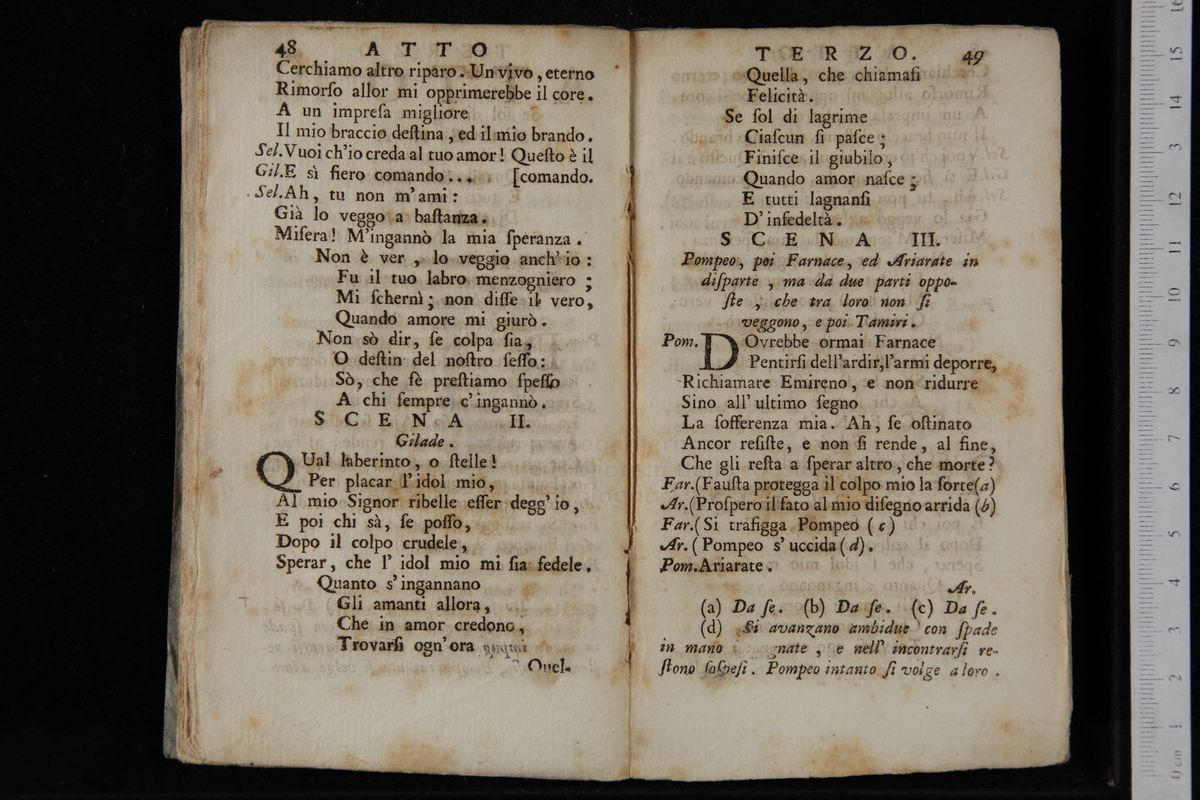 48 ATTO
Cerchiamo altro riparo. Un vivo, eterno
Rimorſo allor mi opprimerebbe il core.
A un impreſa migliore
Il mio braccio deſtina, ed il mio brando.
Sel. Vuoi ch'io creda al tuo amor! Queſto è il
Gil. E sì fiero comando... [comando.
Sel. Ah, tu non m'ami:
Già lo veggo a baſtanza.
Miſera! M'ingannò la mia ſperanza.
Non è ver, lo veggio anch'io:
Fu il tuo labro menzogniero;
Mi ſchernì; non diſſe il vero,
Quando amore mi giurò.
Non sò dir, ſe colpa ſia,
O deſtin del noſtro ſeſſo:
Sò, che fè preſtiamo ſpeſſo
A chi ſempre c'ingannò.
SCENA II.
Gilade.
QUal laberinto, o ſtelle!
Per placar l'idol mio,
Al mio Signor ribelle eſſer degg'io,
E poi chi sà, ſe poſſo,
Dopo il colpo crudele,
Sperar, che l'idol mio mi ſia fedele.
Quanto s'ingannano
Gli amanti allora,
Che in amor credono,
Trovarſi ogn'ora
Quel-
TERZO. 49
Quella, che chiamaſi
Felicità.
Se ſol di lagrime
Ciaſcun ſi paſce;
Finiſce il giubilo,
Quando amor naſce;
E tutti lagnanſi
D'infedeltà.
SCENA III.
Pompeo, poi Farnace, ed Ariarate in
diſparte, ma da due parti oppo-
ſte, che tra loro non ſi
veggono, e poi Tamiri.
Pom. DOvrebbe ormai Farnace
Pentirſi dell'ardir, l'armi deporre,
Richiamare Emireno, e non ridurre
Sino all'ultimo ſegno
La ſofferenza mia. Ah, ſe oſtinato
Ancor reſiſte, e non ſi rende, al fine,
Che gli reſta a ſperar altro, che morte?
Far. (Fauſta protegga il colpo mio la ſorte (a)
Ar. (Proſpero il fato al mio diſegno arrida (b)
Far. (Si trafigga Pompeo (c)
Ar. (Pompeo s'uccida (d).
Pom. Ariarate.
Ar.
(a) Da ſe. (b) Da ſe. (c) Da ſe.
(d) Si avanzano ambidue con ſpade
in mano gnate, e nell'incontrarſi re-
ſtono ſoſpeſi. Pompeo intanto ſi volge a loro.